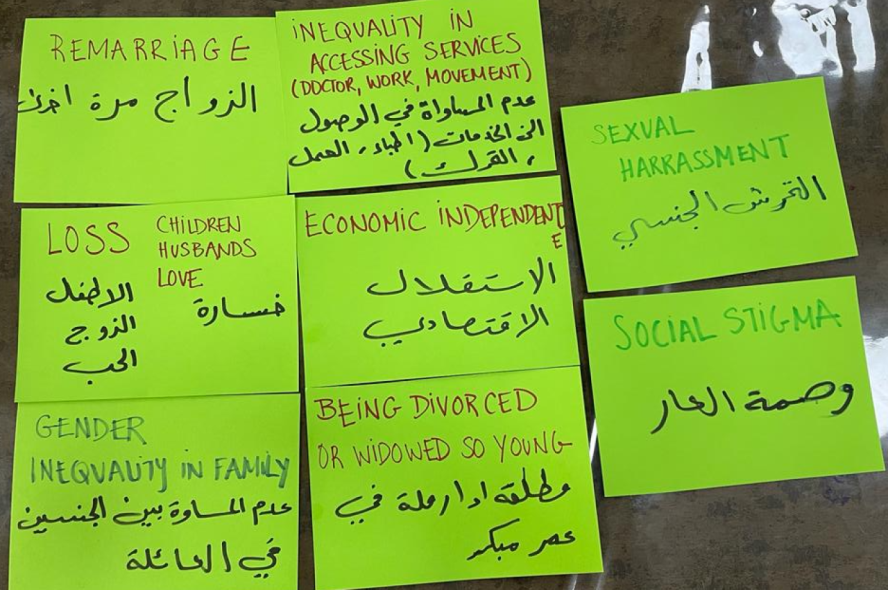 REMARRIAGE
الزواج مرة اخرى
INEQUALITY IN
ACCESSING SERVICES
(DOCTOR, WORK, MOVEMENT)
عدم المساواة في الوصول
الى الخدمات (اطباء، العمل
، التحرك)
SEXUAL
HARRASSMENT
التحرش الجنسي
LOSS
CHILDREN
HUSBANDS
LOVE
خسارة
الاطفال
الزوج
الحب
ECONOMIC INDEPENDENT
E
الاستقلال
الاقتصادي
SOCIAL STIGMA
وصمة العار
GENDER
INEQUALITY IN FAMILY
عدم المساوة بين الجنسين
في العائلة
BEING DIVORCED
OR WIDOWED SO YOUNG
مطلقة او ارملة في
عمر مبكر